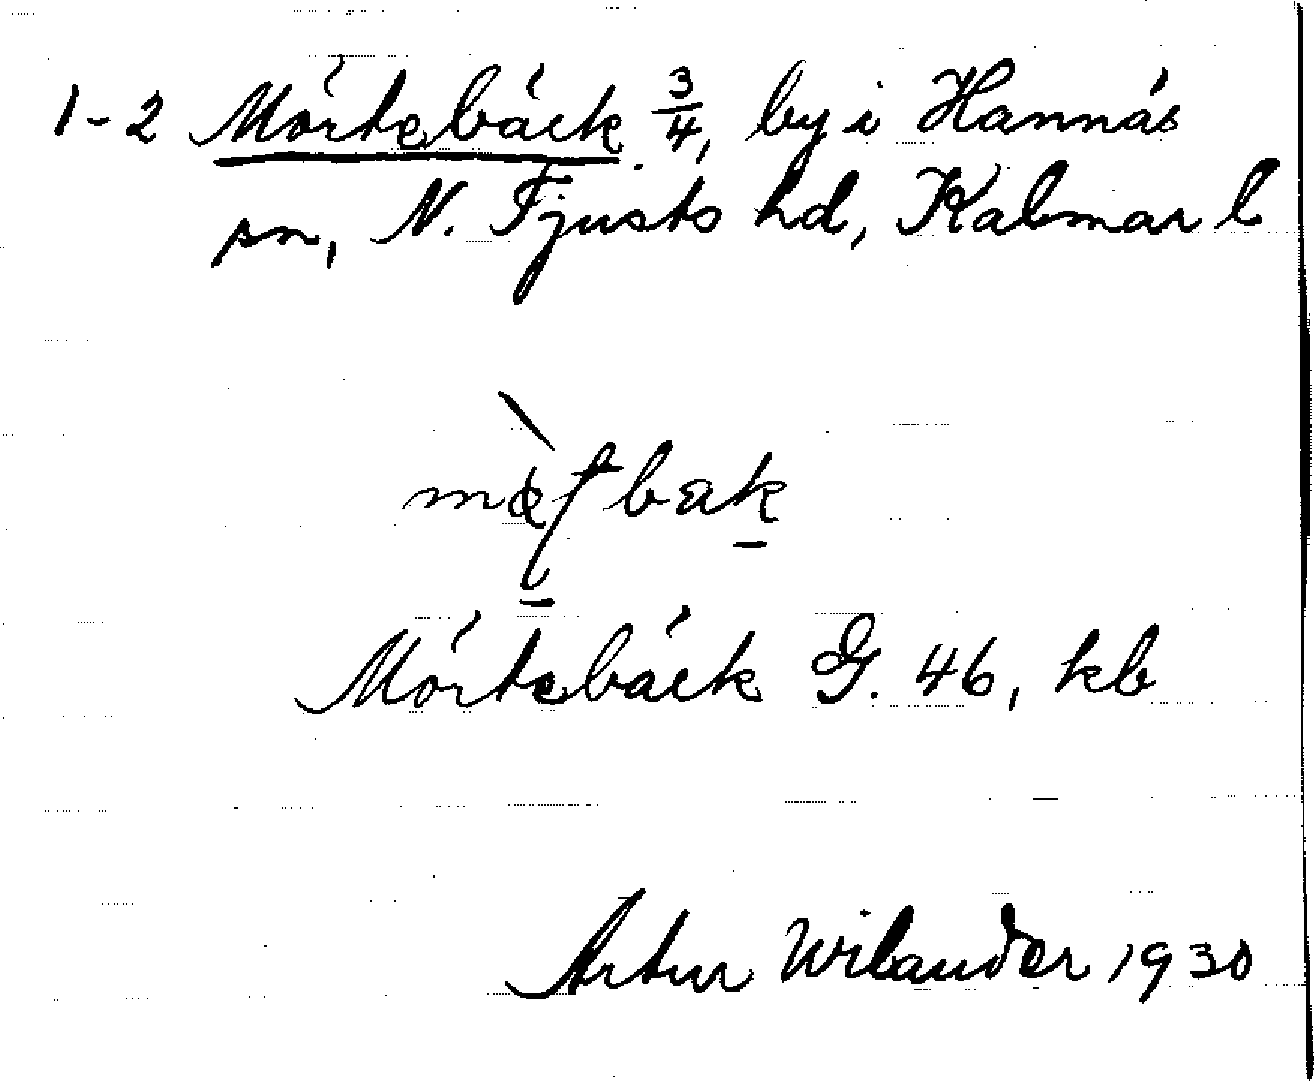 1-2 Mörtebäck 3/4, by i Hannäs
sn, N. Tjusts hd, Kalmar l
Mörtebäck G. 46, kb
Artur Wilander 1930